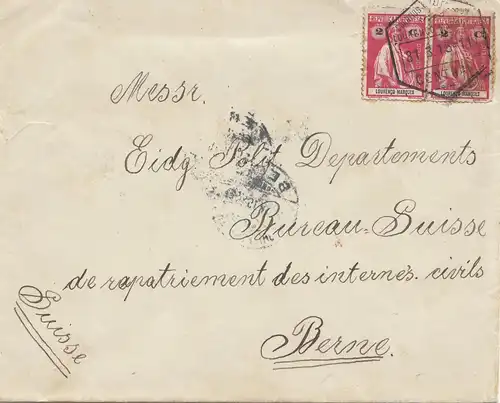 REPUBLICA PORTUGUESA
2 C.
LOURENÇO MARQUES
2 C.
LOURENÇO MARQUES
Messr.
Eidg Polit Departements
Bureau-Suisse
de rapatriement des internés civils
Suisse
Berne.